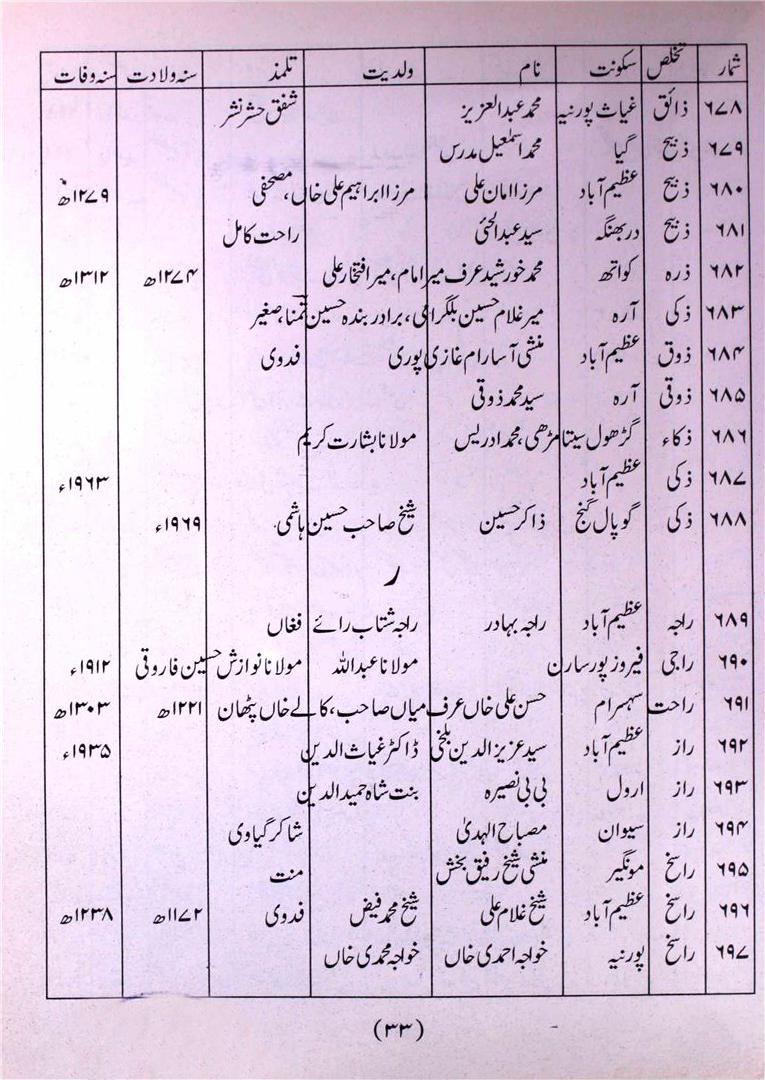 شمار تخلص سکونت نام ولدیت تلمذ سنہ ولادت سنہ وفات
۶۷۸ ذائق غیاث پورنیہ محمد عبدالعزیز شفق حشر نشر
۶۷۹ ذبیح گیا محمد اسمٰعیل مدرس
۶۸۰ ذبیح عظیم آباد مرزا امان علی مرزا ابراہیم علی خاں، مصحفی ۱۲۷۹ھ
۶۸۱ ذبیح دربھنگہ سید عبدالحئی راحت کامل
۶۸۲ ذرہ کواتھ محمد خورشید عرف میر امام، میر افتخار علی ۱۲۷۴ھ ۱۳۱۲ھ
۶۸۳ ذکی آرہ میر غلام حسین بلگرامی، برادر بندہ حسین تمنا، صغیر
۶۸۴ ذوق عظیم آباد منشی آسارام غازی پوری فدوی
۶۸۵ ذوقی آرہ سید محمد ذوقی
۶۸۶ ذکاء گڑھول سیتامڑھی، محمد ادریس مولانا بشارت کریم
۶۸۷ ذکی عظیم آباد ۱۹۶۳ء
۶۸۸ ذکی گوپال گنج ذاکر حسین شیخ صاحب حسین ہاشمی ۱۹۶۹ء
ر
۶۸۹ راجہ عظیم آباد راجہ بہادر راجہ شتاب رائے فغاں
۶۹۰ راجی فیروز پور سارن مولانا عبداللہ مولانا نوازش حسین فاروقی ۱۹۱۲ء
۶۹۱ راحت سہسرام حسن علی خاں عرف میاں صاحب، کالے خاں پٹھان ۱۲۲۱ھ ۱۳۰۳ھ
۶۹۲ راز عظیم آباد سید عزیز الدین بلخی ڈاکٹر غیاث الدین ۱۹۳۵ء
۶۹۳ راز ارول بی بی نصیرہ بنت شاہ حمید الدین
۶۹۴ راز سیوان مصباح الہدیٰ شاکر گیاوی
۶۹۵ راسخ مونگیر منشی شیخ رفیق بخش منت
۶۹۶ راسخ عظیم آباد شیخ غلام علی شیخ محمد فیض فدوی ۱۱۷۲ھ ۱۲۳۸ھ
۶۹۷ راسخ پورنیہ خواجہ احمدی خاں خواجہ محمدی خاں
(۳۳)